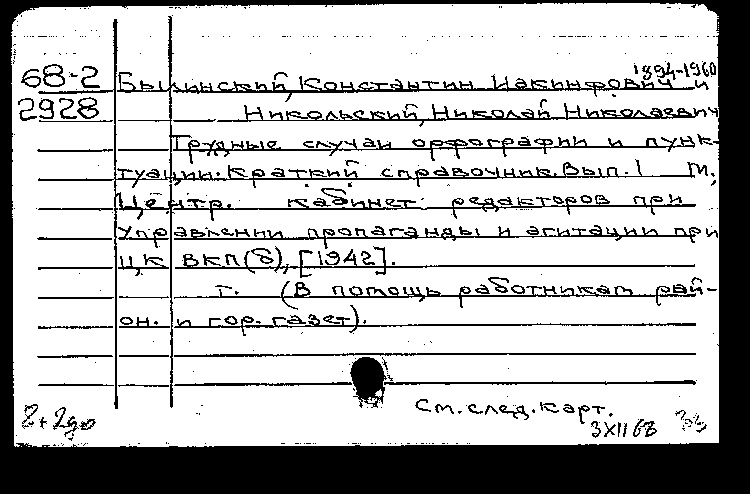 1894-1960
68-2 Былинский, Константин Иакинфович и
2928 Никольский, Николай Николаевич
Трудные случаи орфографии и пунк-
туации. Краткий справочник. Вып. 1 М.,
Центр. кабинет редакторов при
Управлении пропаганды и агитации при
ЦК ВКП(б), [1942].
т. (В помощь работникам рай-
он. и гор. газет).
См. след. карт.
3 XII 68